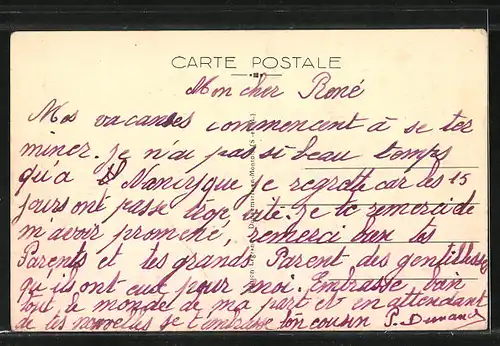 CARTE POSTALE
Mon cher René
Mes vacanses commencent à se ter
miner. Je n'ai pas si beau temps
qu'a St Nancy que je regrette car les 15
jours ont passé trop vite. Je te remerci de
m'avoir promené, remerci bien tes
Parents et tes grands Parent des gentilless
qu'ils ont eue pour moi. Embrasse bien
tout le monde de ma part et en attendant
de tes nouvelles je t'embrasse ton cousin P.